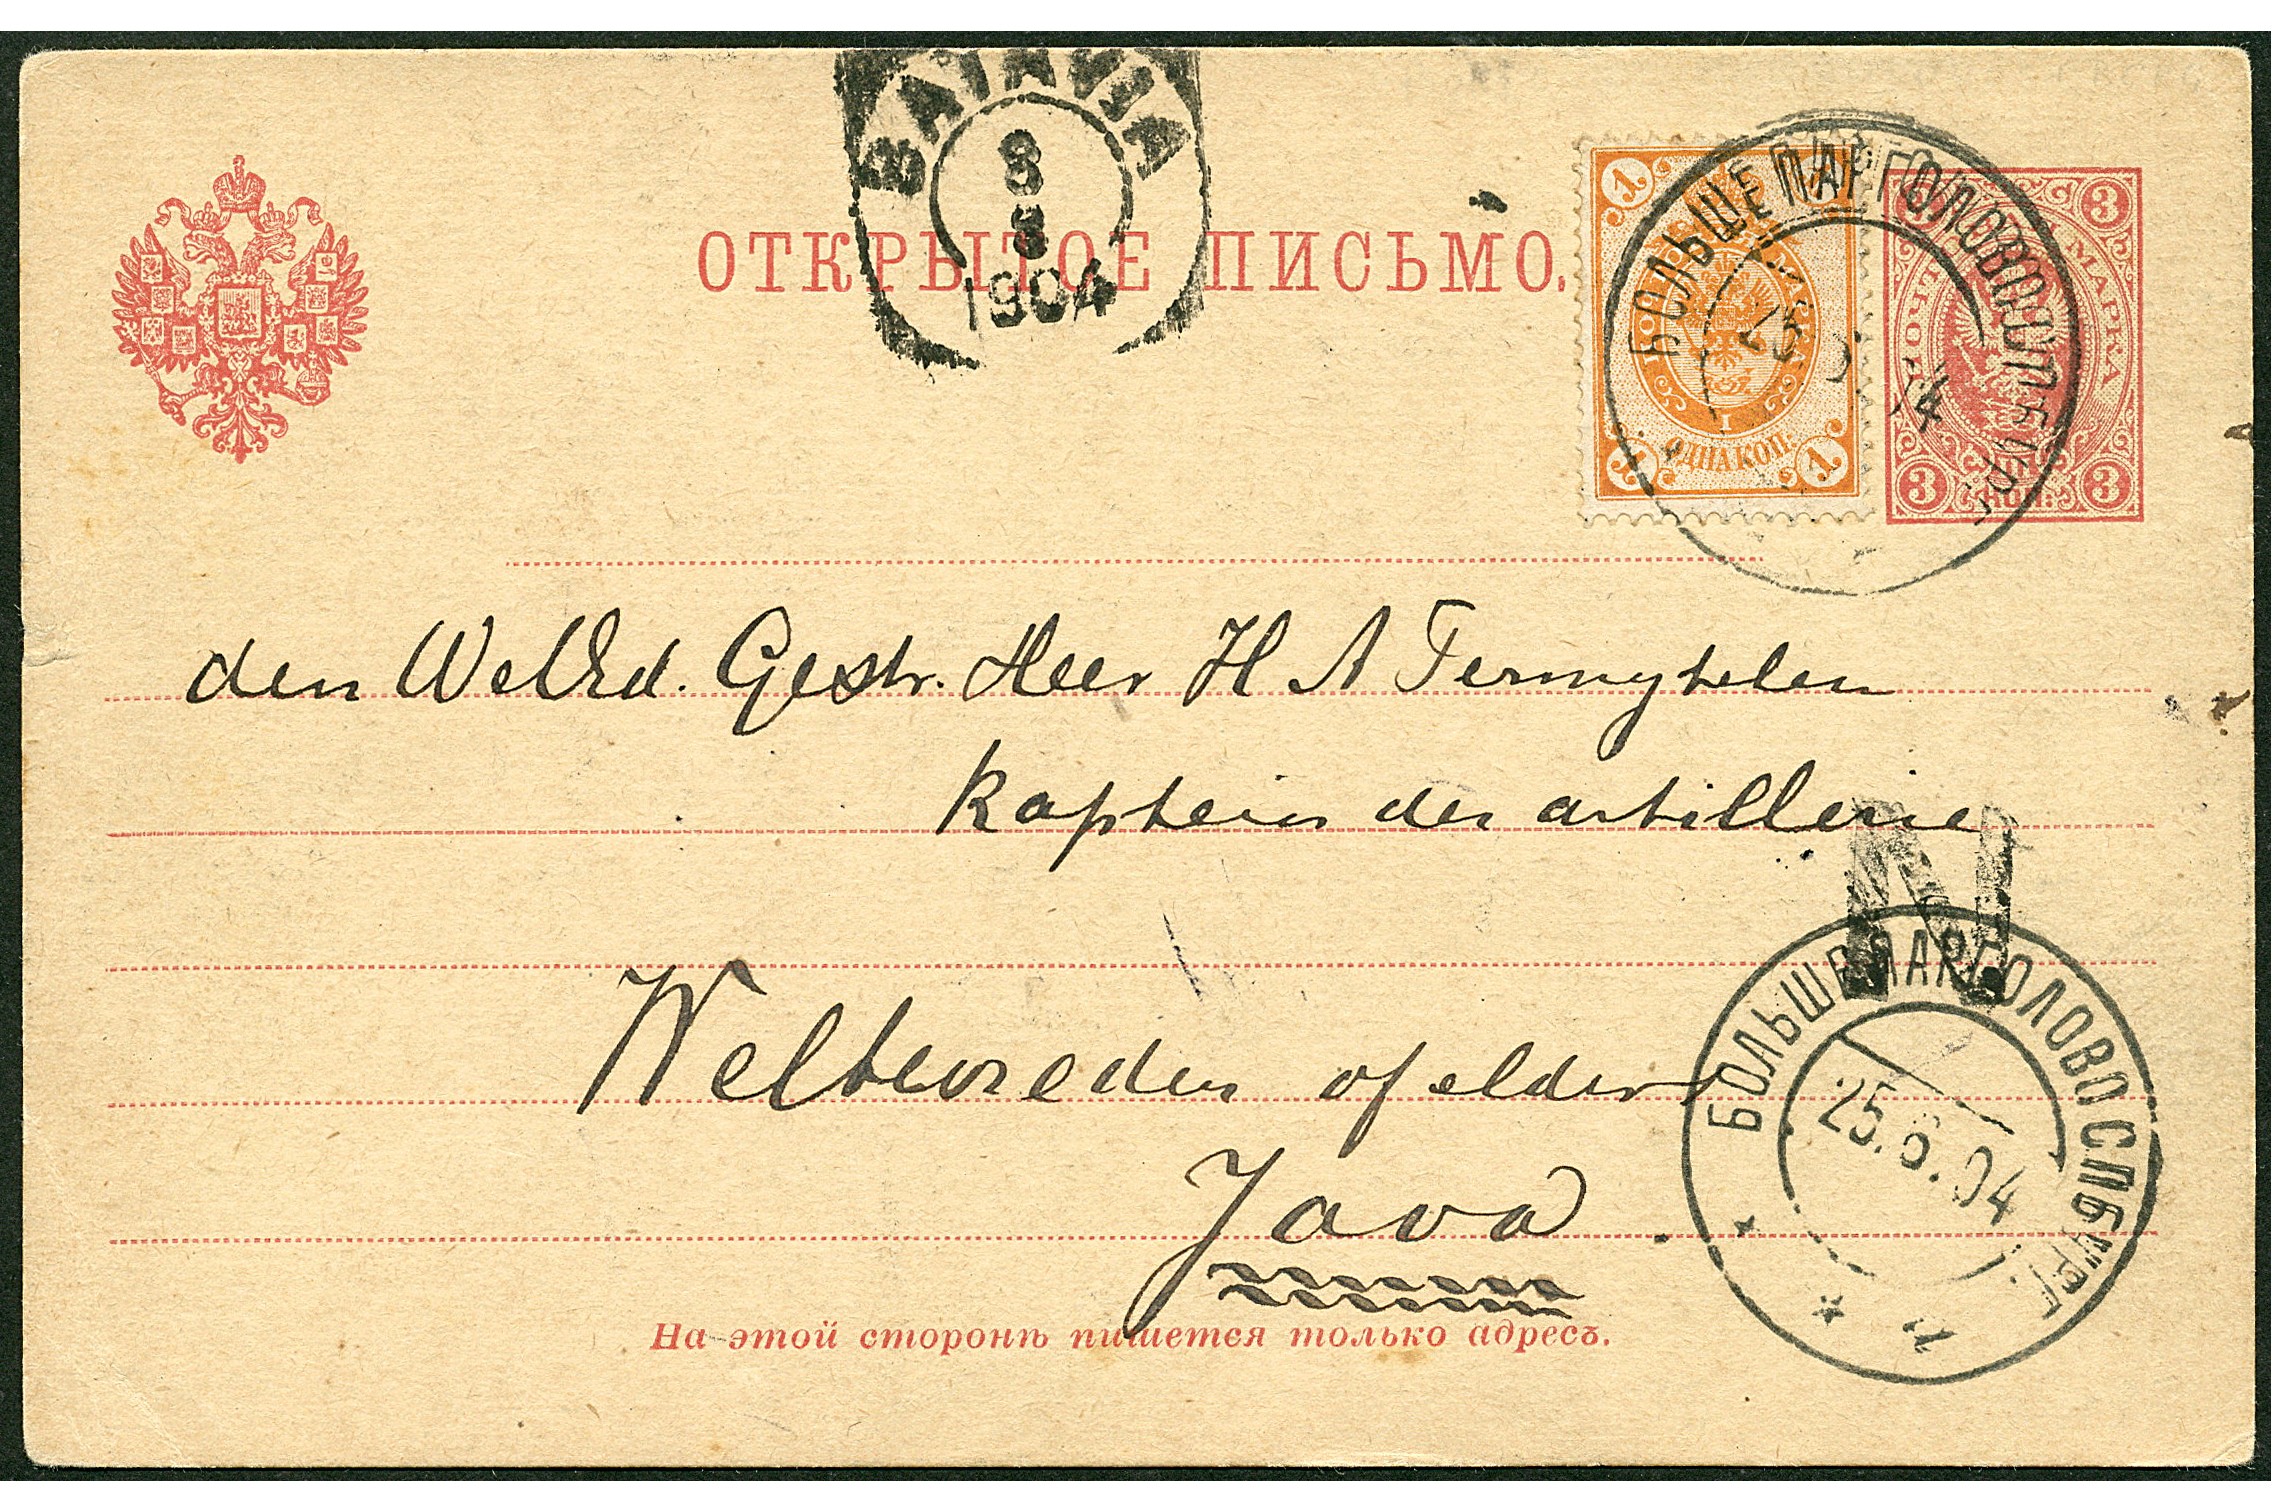 BATAVIA
8
8
1904
ОТКРЫТОЕ ПИСЬМО.
1 1
ПОЧТОВАЯ МАРКА
1
ОДНА КОП.
1 1
3 3
ПОЧТОВАЯ МАРКА
3 КОП. 3
БОЛЬШЕ ПАРГОЛОВО С.П.БУРГ.
25. 6. 04
den WelEd. Gestr. Heer H A Termytelen
kaptein der artillerie
N
Weltevreden of elders
Java
БОЛЬШЕ ПАРГОЛОВО С.П.БУРГ.
25. 6. 04
На этой сторонѣ пишется только адресъ.